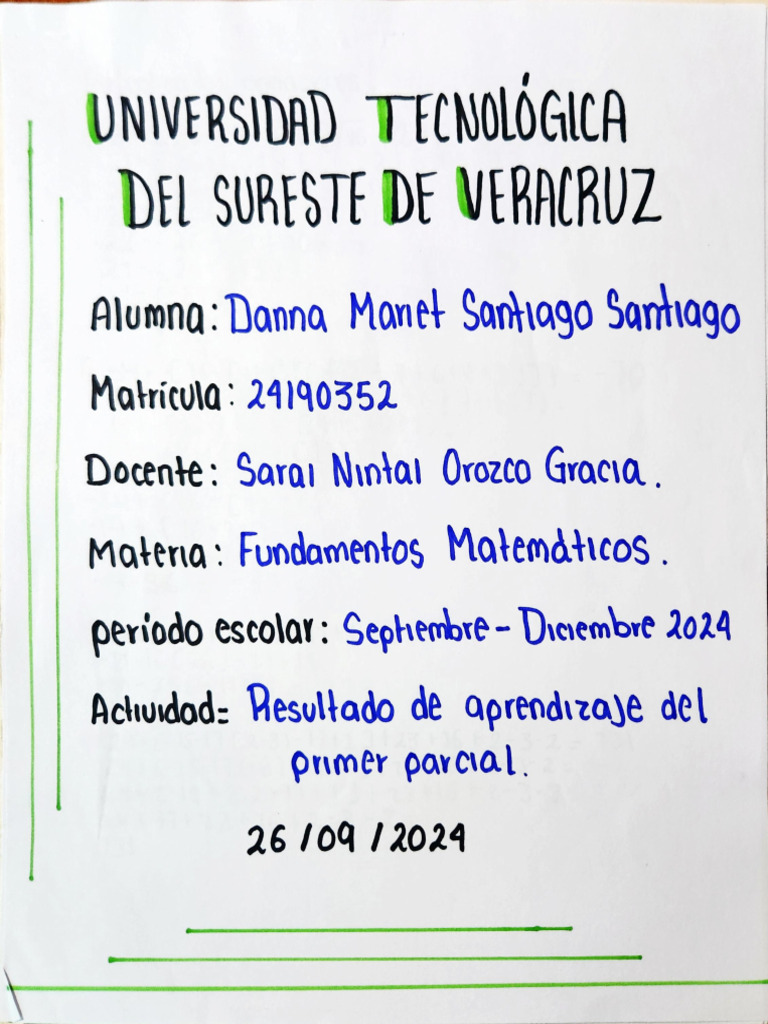 UNIVERSIDAD TECNOLÓGICA
DEL SURESTE DE VERACRUZ
Alumna: Danna Manet Santiago Santiago
Matrícula: 24190352
Docente: Sarai Nintai Orozco Gracia.
Materia: Fundamentos Matemáticos.
período escolar: Septiembre - Diciembre 2024
Actividad= Resultado de aprendizaje del
primer parcial.
26/09/2024